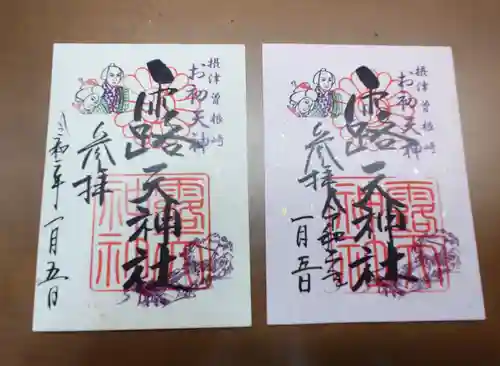 摂津曽根崎
お初天神
露天神社
参拝
令和二年
一月五日
摂津曽根崎
お初天神
露天神社
参拝
令和二年
一月五日